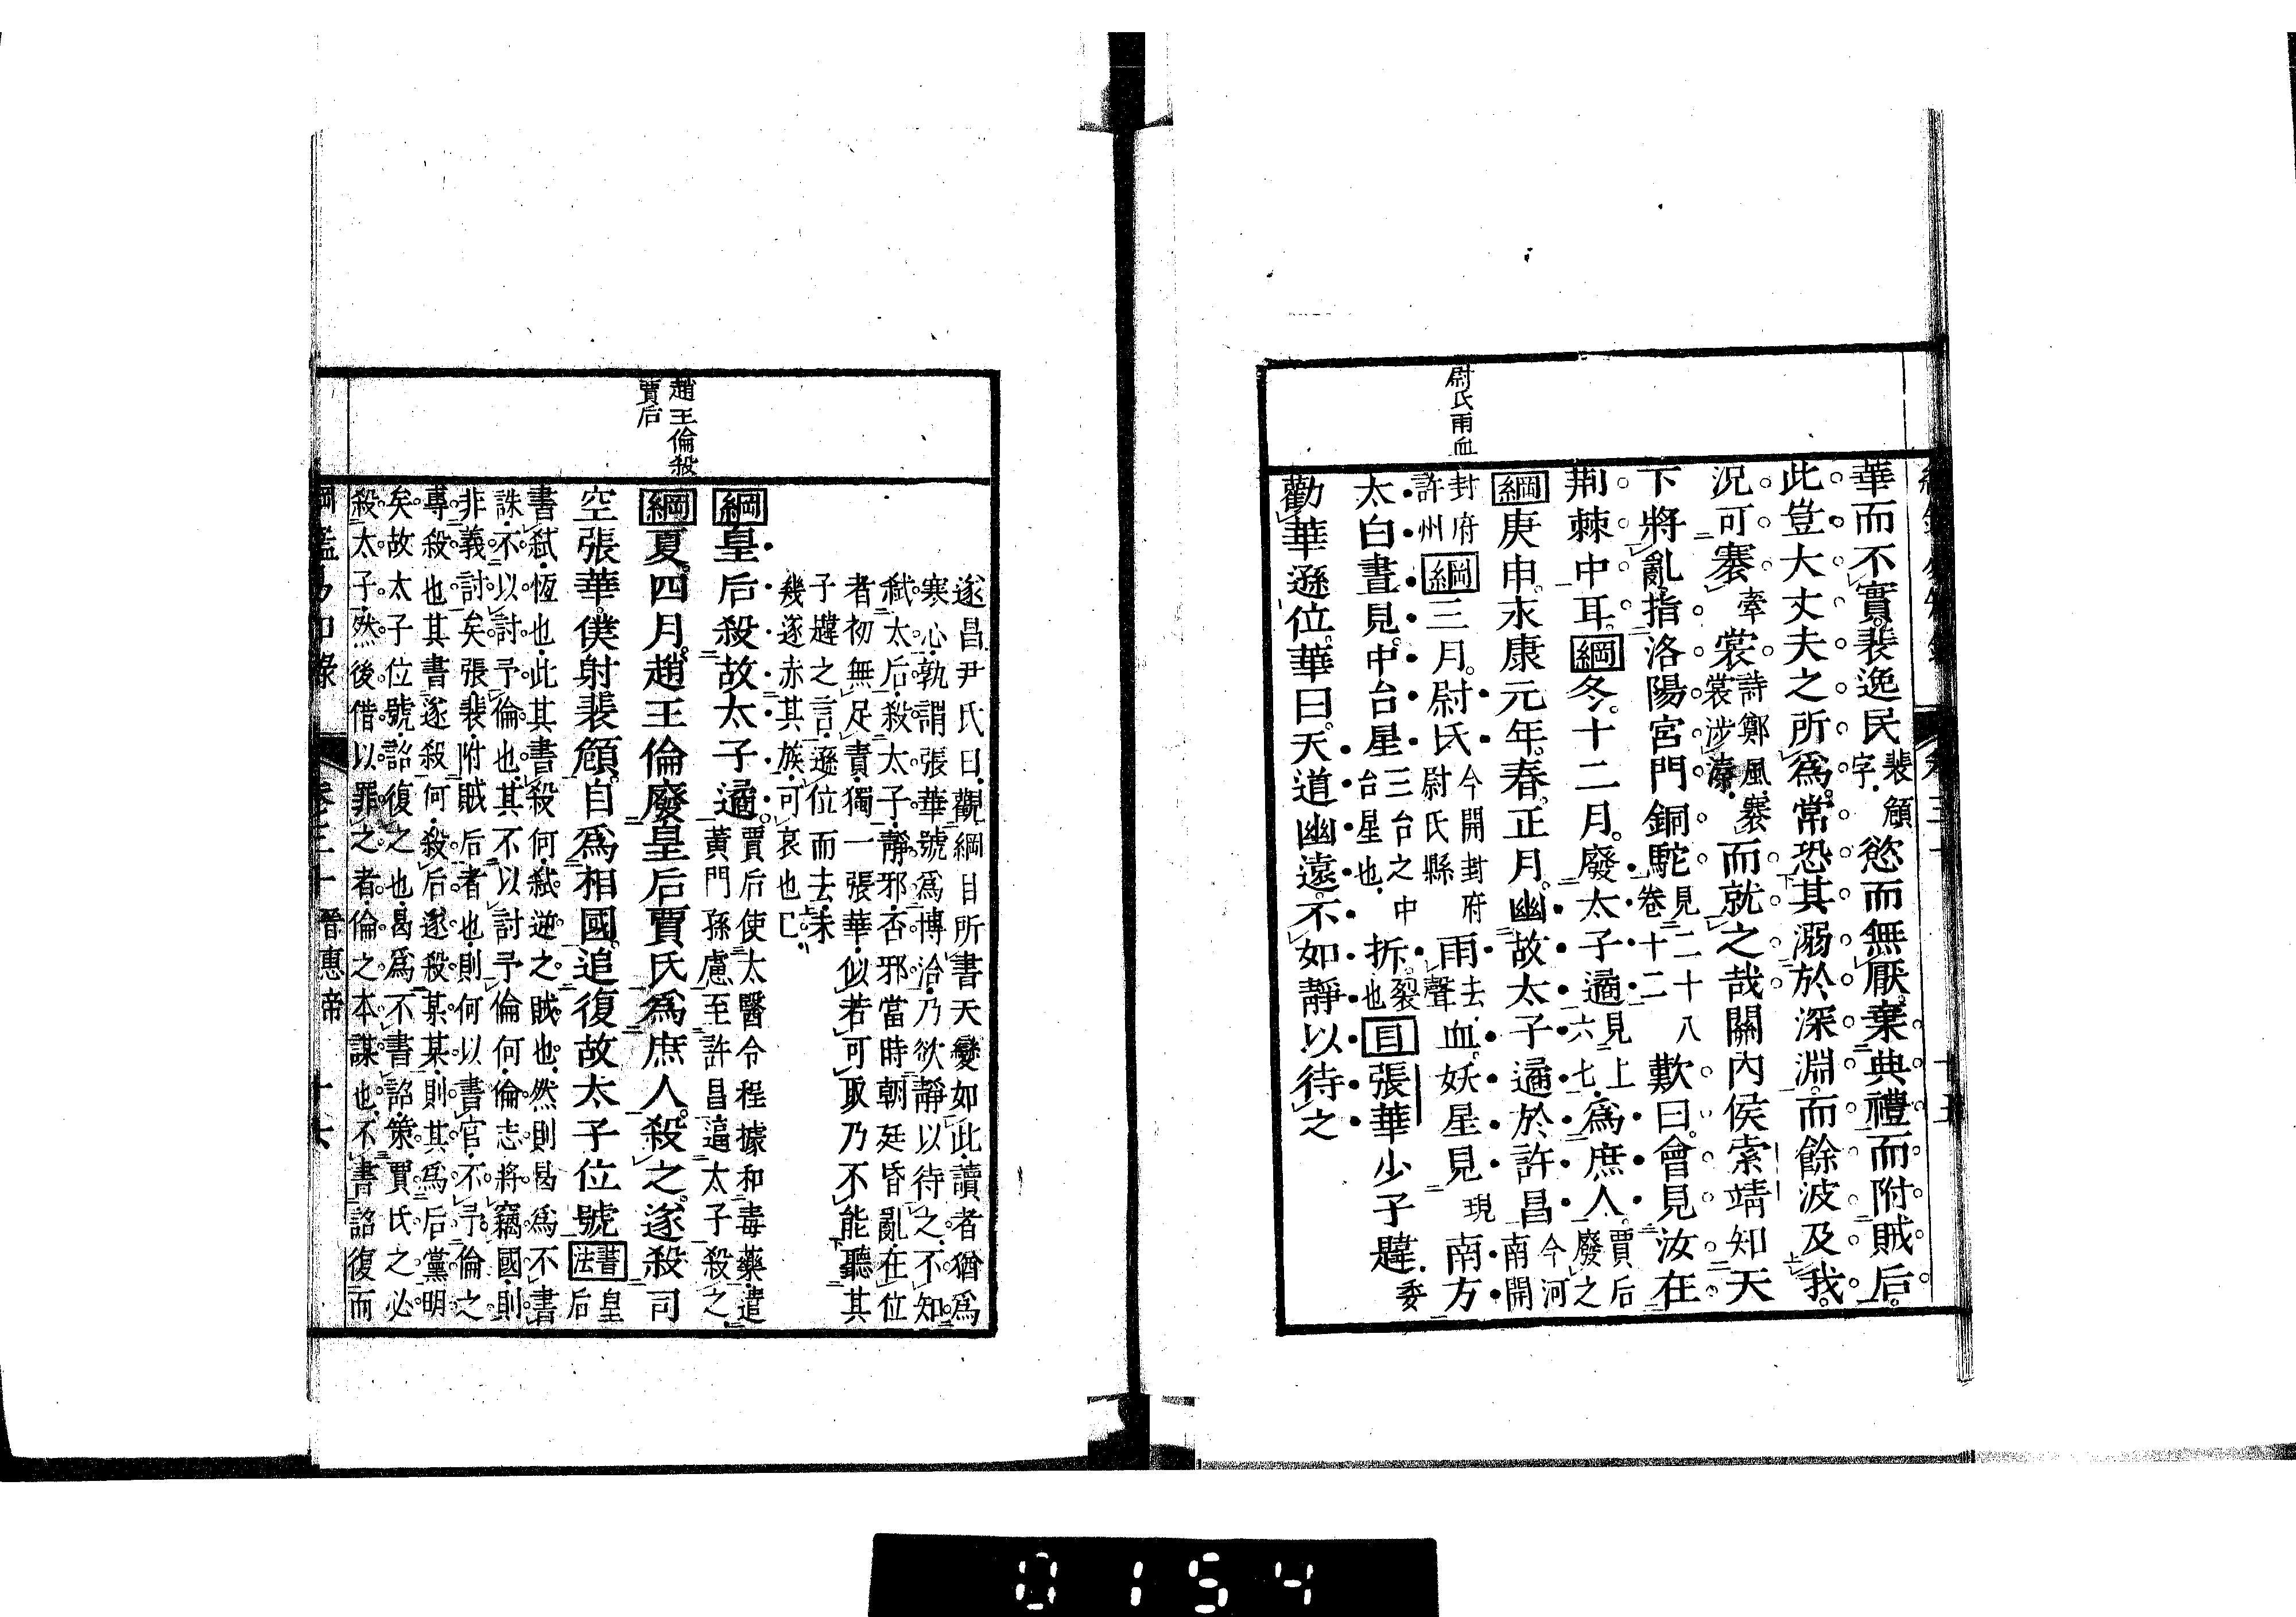 尉氏雨血
華而不實。裴逸民裴頠字.慾而無厭。棄典禮而附賊后。
此豈大丈夫之所爲。常恐其溺於深淵。而餘波及我。
況可褰牽裳詩鄭風褰裳涉溱.而就之哉關內侯索靖知天
下將亂。指洛陽宮門銅駝見二十八卷十二歎曰。會見汝在
荆棘中耳。綱冬。十二月。廢太子遹見上六七.爲庶人。賈后廢之
綱庚申。永康元年。春。正月。幽故太子遹於許昌今河南開
封府許州綱三月。尉氏今開封府尉氏縣雨去聲血。妖星見現南方
太白晝見。中台星三台之中台星也.拆裂也目張華少子韙.委
勸華遜位。華曰。天道幽遠。不如靜以待之
趙王倫殺
賈后
遂昌尹氏曰.觀綱目所書天變如此.讀者猶爲
寒心.孰謂張華號爲博洽.乃欲靜以待之.不知
弑太后.殺太子.靜邪.否邪當時朝廷昏亂.在位
者初無足責.獨一張華.似若可取乃不能聽其
子韙之言.遜位而去.未
幾遂赤其族.可哀也已.
綱皇后殺故太子遹。賈后使太醫令程據和毒藥.遣黃門孫慮至許昌.逼太子殺之.
綱夏。四月。趙王倫廢皇后賈氏爲庶人。殺之。遂殺司
空張華。僕射裴頠。自爲相國。追復故太子位號書法皇后
書弑.恆也.此其書殺何.弑逆之賊也.然則曷爲不書
誅.不以討予倫也.其不以討予倫何.倫志將竊國.則
非義討矣.張裴.附賊后者也.則何以書官.不予倫之
專殺也其書遂殺何.殺后遂殺某某.則其爲后黨明
矣.故太子位號.詔復之也.曷爲不書詔.策賈氏之必
殺太子.然後借以罪之者.倫之本謀也.不書詔復而
卷三十 晉惠帝
0154